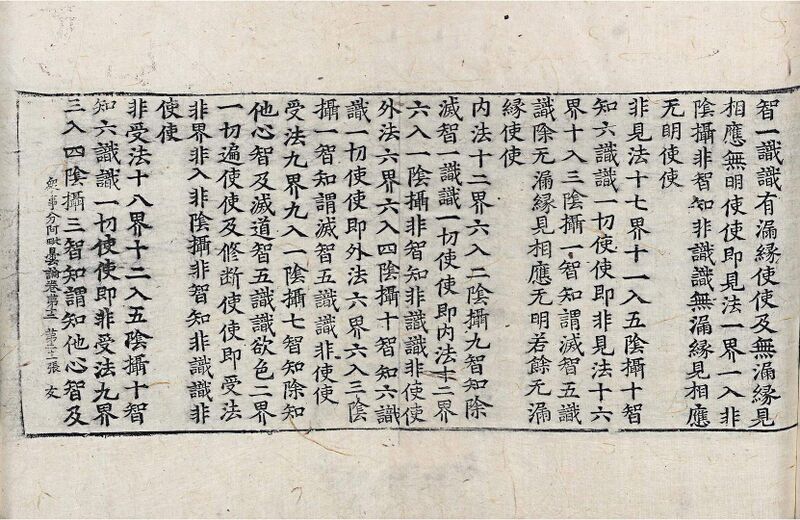 智一識識有漏縁使使及無漏縁見
相應無明使使即見法一界一入非
陰攝非智知非識識無漏縁見相應
无明使使
非見法十七界十一入五陰攝十智
知六識識一切使使即非見法十六
界十入三陰攝一智知謂滅智五識
識除无漏縁見相應无明若餘无漏
縁使使
内法十二界六入二陰攝九智知除
滅智一識識一切使使即内法十二界
六入一陰攝非智知非識識非使使
外法六界六入四陰攝十智知六識
識一切使使即外法六界六入三陰
攝一智知謂滅智五識識非使使
受法九界九入一陰攝七智知除知
他心智及滅道智五識識欲色二界
一切遍使使及修断使使即受法
非界非入非陰攝非智知非識識非
使使
非受法十八界十二入五陰攝十智
知六識識一切使使即非受法九界
三入四陰攝三智知謂知他心智及
衆事分阿毗曇論卷第 張 友